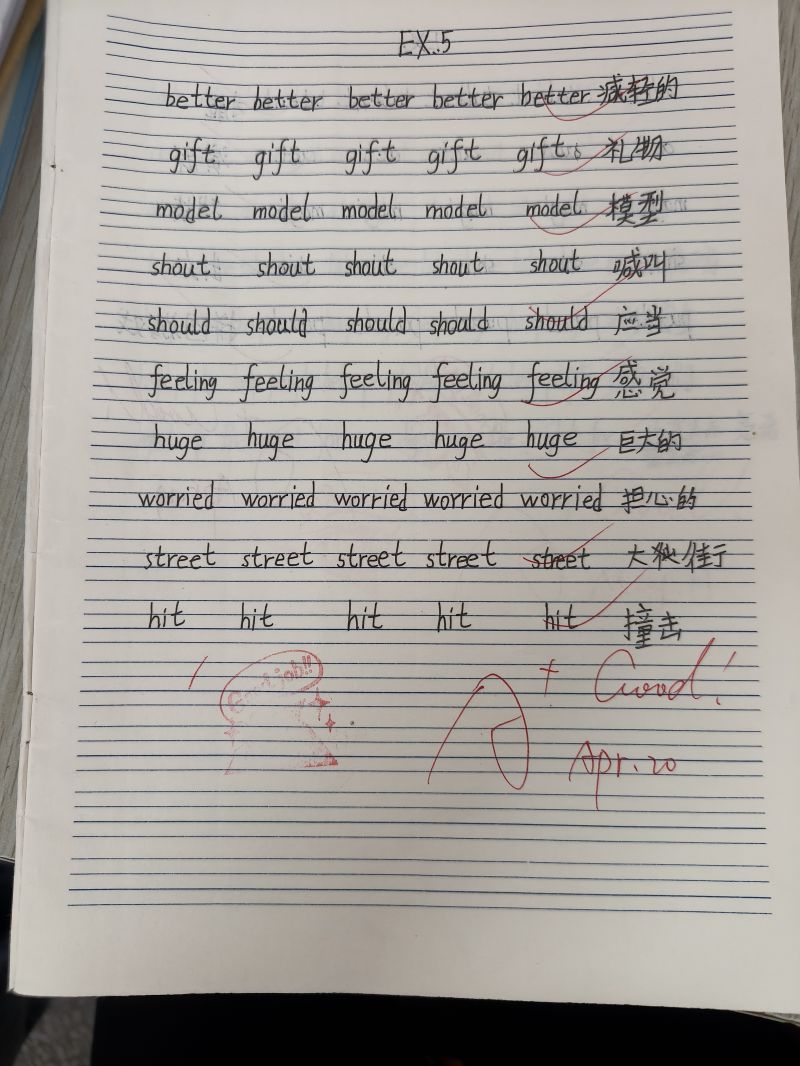 EX.5
better better better better better 减轻的
gift gift gift gift gift 礼物
model model model model model 模型
shout shout shout shout shout 喊叫
should should should should should 应当
feeling feeling feeling feeling feeling 感觉
huge huge huge huge huge 巨大的
worried worried worried worried worried 担心的
street street street street street 大街
hit hit hit hit hit 撞击
Good job!!
A+ Good!
Apr. 20